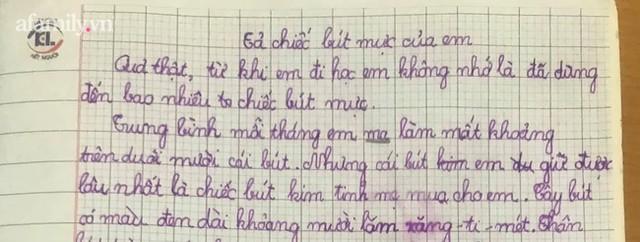 afamily.vn
KL
HẾT NGƯỜI
Cả chiếc bút mực của em
Quả thật, từ khi em đi học em không nhớ là đã dùng
đến bao nhiêu to chiếc bút mực.
Trung bình mỗi tháng em mạ làm mất khoảng
trên dưới mười cái bút. Nhưng cái bút kim em dư giữ được
lâu nhất là chiếc bút kim tinh mạ mua cho em. Cây bút
có màu đen dài khoảng mười lăm xăng-ti-mét. Thân